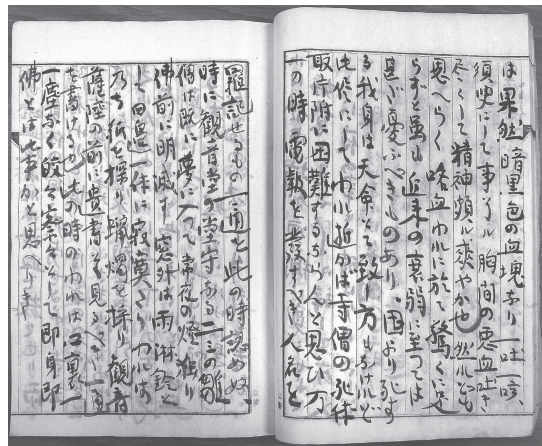 は果然暗黒色の血塊なり一吐一咳、
須臾にして事了ル胸間の悪血吐き
尽くして精神頗ル爽やか也然れども
思へらく咯血われに於て驚くに足
らずと雖も近来の衰弱に至つては
甚だ憂ふべきものあり、固より死す
る我身は天命とて致し方もなけれども
此儘にしてわれ逝かば寺僧の死体
取片附に困難するならんと思ひ万
一の時電報を発すべき人名を
羅記せるもの一通を此の時認め
時に観音堂の堂守なる二三の
僧は既に夢に入つて常夜の燈独り
佛前に明滅す窓外は雨淋鈴と
して四邊一体に寂寞たりわれは
乃ち紙を採り蝋燭を採り観音
薩埵の前に遺書とも見るべき一通
を書ける也此の時のわれは心裏一
一塵なく皎々
として即身即
佛とは此事かと思へりき